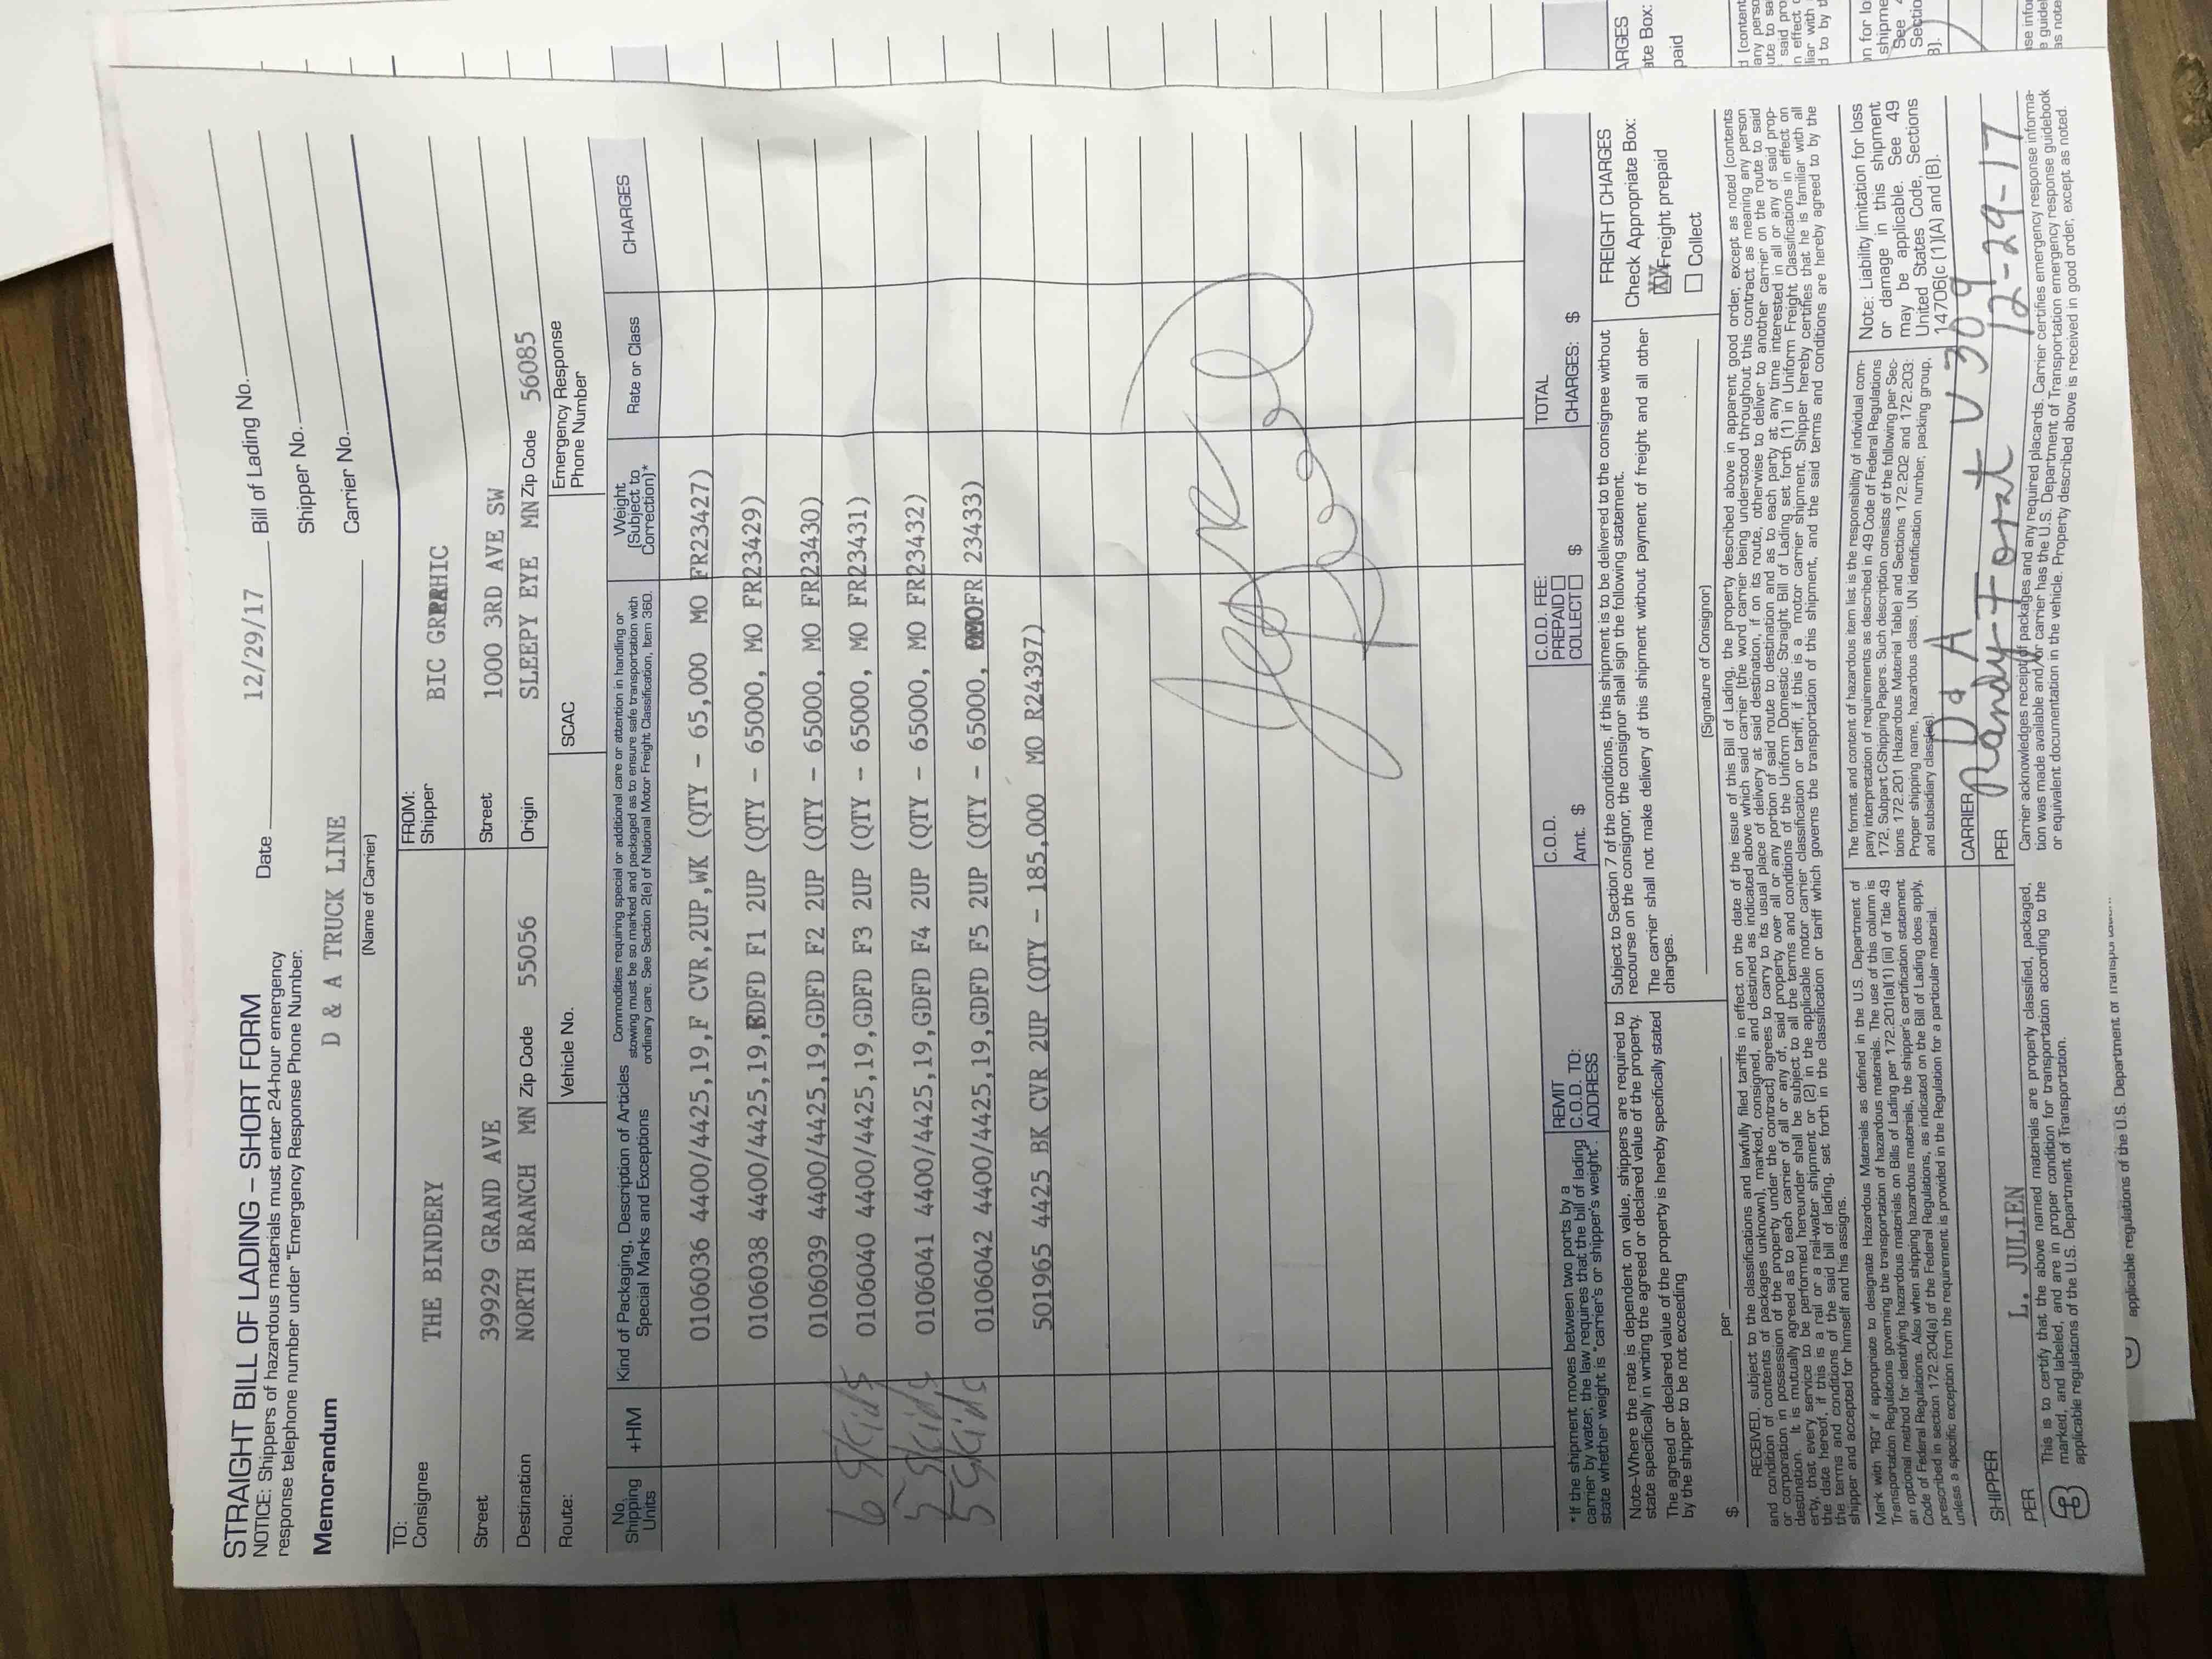 STRAIGHT BILL OF LADING – SHORT FORM
NOTICE: Shippers of hazardous materials must enter 24-hour emergency
response telephone number under "Emergency Response Phone Number.
Date 12/29/17
Bill of Lading No.
Shipper No.
Carrier No.
Memorandum
D & A TRUCK LINE
(Name of Carrier)
TO:
Consignee THE BINDERY
FROM:
Shipper BIC GRAPHIC
Street 39929 GRAND AVE
Street 1000 3RD AVE SW
Destination NORTH BRANCH MN Zip Code 55056
Origin SLEEPY EYE MN Zip Code 56085
Route:
Vehicle No.
SCAC
Emergency Response
Phone Number
No.
Shipping
Units
+HM
Kind of Packaging, Description of Articles
Special Marks and Exceptions
Commodities requiring special or additional care or attention in handling or
stowing must be so marked and packaged as to ensure safe transportation with
ordinary care. See Section 2(e) of National Motor Freight Classification, Item 360.
Weight
(Subject to
Correction)*
Rate or Class
CHARGES
0106036 4400/4425,19,F CVR,2UP,WK (QTY – 65,000 MO FR23427)
0106038 4400/4425,19,GDFD F1 2UP (QTY – 65000, MO FR23429)
0106039 4400/4425,19,GDFD F2 2UP (QTY – 65000, MO FR23430)
6 Skids 0106040 4400/4425,19,GDFD F3 2UP (QTY – 65000, MO FR23431)
5 Skids 0106041 4400/4425,19,GDFD F4 2UP (QTY – 65000, MO FR23432)
5 Skids 0106042 4400/4425,19,GDFD F5 2UP (QTY – 65000, MOFR 23433)
501965 4425 BK CVR 2UP (QTY – 185,000 MO R24397)
*If the shipment moves between two ports by a
carrier by water, the law requires that the bill of lading
state whether weight is "carrier's or shipper's weight".
REMIT
C.O.D. TO:
ADDRESS
C.O.D.
Amt. $
C.O.D. FEE:
PREPAID
COLLECT $
TOTAL
CHARGES: $
Note–Where the rate is dependent on value, shippers are required to
state specifically in writing the agreed or declared value of the property.
The agreed or declared value of the property is hereby specifically stated
by the shipper to be not exceeding
$ per
Subject to Section 7 of the conditions, if this shipment is to be delivered to the consignee without
recourse on the consignor, the consignor shall sign the following statement.
The carrier shall not make delivery of this shipment without payment of freight and all other
charges.
(Signature of Consignor)
FREIGHT CHARGES
Check Appropriate Box:
XX Freight prepaid
Collect
RECEIVED, subject to the classifications and lawfully filed tariffs in effect on the date of the issue of this Bill of Lading, the property described above in apparent good order, except as noted (contents
and condition of contents of packages unknown), marked, consigned, and destined as indicated above which said carrier (the word carrier being understood throughout this contract as meaning any person
or corporation in possession of the property under the contract) agrees to carry to its usual place of delivery at said destination, if on its route, otherwise to deliver to another carrier on the route to said
destination. It is mutually agreed as to each carrier of all or any of, said property over all or any portion of said route to destination and as to each party at any time interested in all or any of said prop-
erty, that every service to be performed hereunder shall be subject to all the terms and conditions of the Uniform Domestic Straight Bill of Lading set forth (1) in Uniform Freight Classifications in effect on
the date hereof, if this is a rail or a rail-water shipment or (2) in the applicable motor carrier classification or tariff, if this is a motor carrier shipment. Shipper hereby certifies that he is familiar with all
the terms and conditions of the said bill of lading, set forth in the classification or tariff which governs the transportation of this shipment, and the said terms and conditions are hereby agreed to by the
shipper and accepted for himself and his assigns.
Mark with "RQ" if appropriate to designate Hazardous Materials as defined in the U.S. Department of
Transportation Regulations governing the transportation of hazardous materials. The use of this column is
an optional method for identifying hazardous materials on Bills of Lading per 172.201(a)(1) (iii) of Title 49
Code of Federal Regulations. Also when shipping hazardous materials, the shipper's certification statement
prescribed in section 172.204(a) of the Federal Regulations, as indicated on the Bill of Lading does apply,
unless a specific exception from the requirement is provided in the Regulation for a particular material.
The format and content of hazardous item list is the responsibility of individual com-
pany interpretation of requirements as described in 49 Code of Federal Regulations
172, Subpart C-Shipping Papers. Such description consists of the following per Sec-
tions 172.201 (Hazardous Material Table) and Sections 172.202 and 172.203:
Proper shipping name, hazardous class, UN identification number, packing group,
and subsidiary class(es).
Note: Liability limitation for loss
or damage in this shipment
may be applicable. See 49
United States Code, Sections
14706(c (1)(A) and (B).
SHIPPER
CARRIER D & A V 309
PER L. JULIEN
PER Randy Forat 12-29-17
This is to certify that the above named materials are properly classified, packaged,
marked, and labeled, and are in proper condition for transportation according to the
applicable regulations of the U.S. Department of Transportation.
Carrier acknowledges receipt of packages and any required placards. Carrier certifies emergency response informa-
tion was made available and/or carrier has the U.S. Department of Transportation emergency response guidebook
or equivalent documentation in the vehicle. Property described above is received in good order, except as noted.
applicable regulations of the U.S. Department of